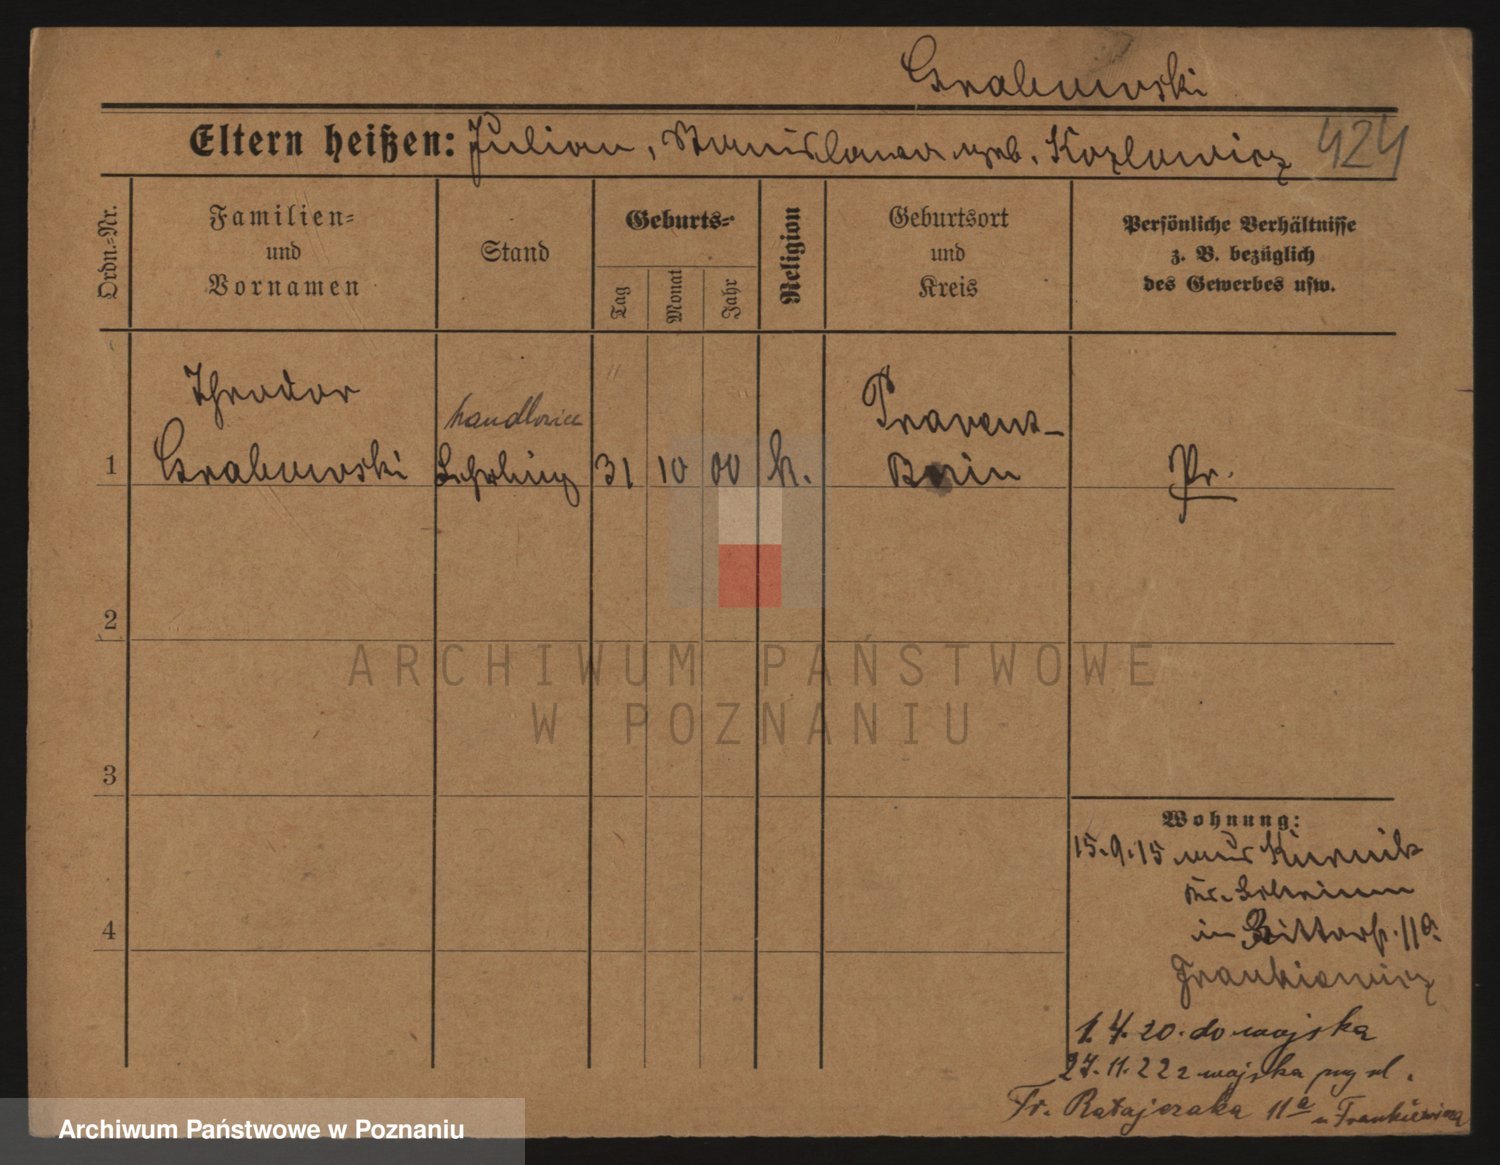 Grabowski
Eltern heißen: Julian, Stanislawa geb. Kozlowicz 424
Ordn.=Nr.
Familien=
und
Vornamen
Stand
Geburts=
Tag
Monat
Jahr
Religion
Geburtsort
und
Kreis
Persönliche Verhältnisse
z. B. bezüglich
des Gewerbes usw.
Theodor
handlowiec
1 Grabowski Lehrling 31 10 00 k. Pr.
2
3
4
Wohnung:
15.9.15 aus Kurnik
Kr. Schrimm
in Ritterst. 11a.
Frankiewicz
1.4.20. do wojska
27.11.22 z wojska
Fr. Ratajczaka 11a u Frankiewicza
ARCHIWUM PAŃSTWOWE
W POZNANIU
Archiwum Państwowe w Poznaniu